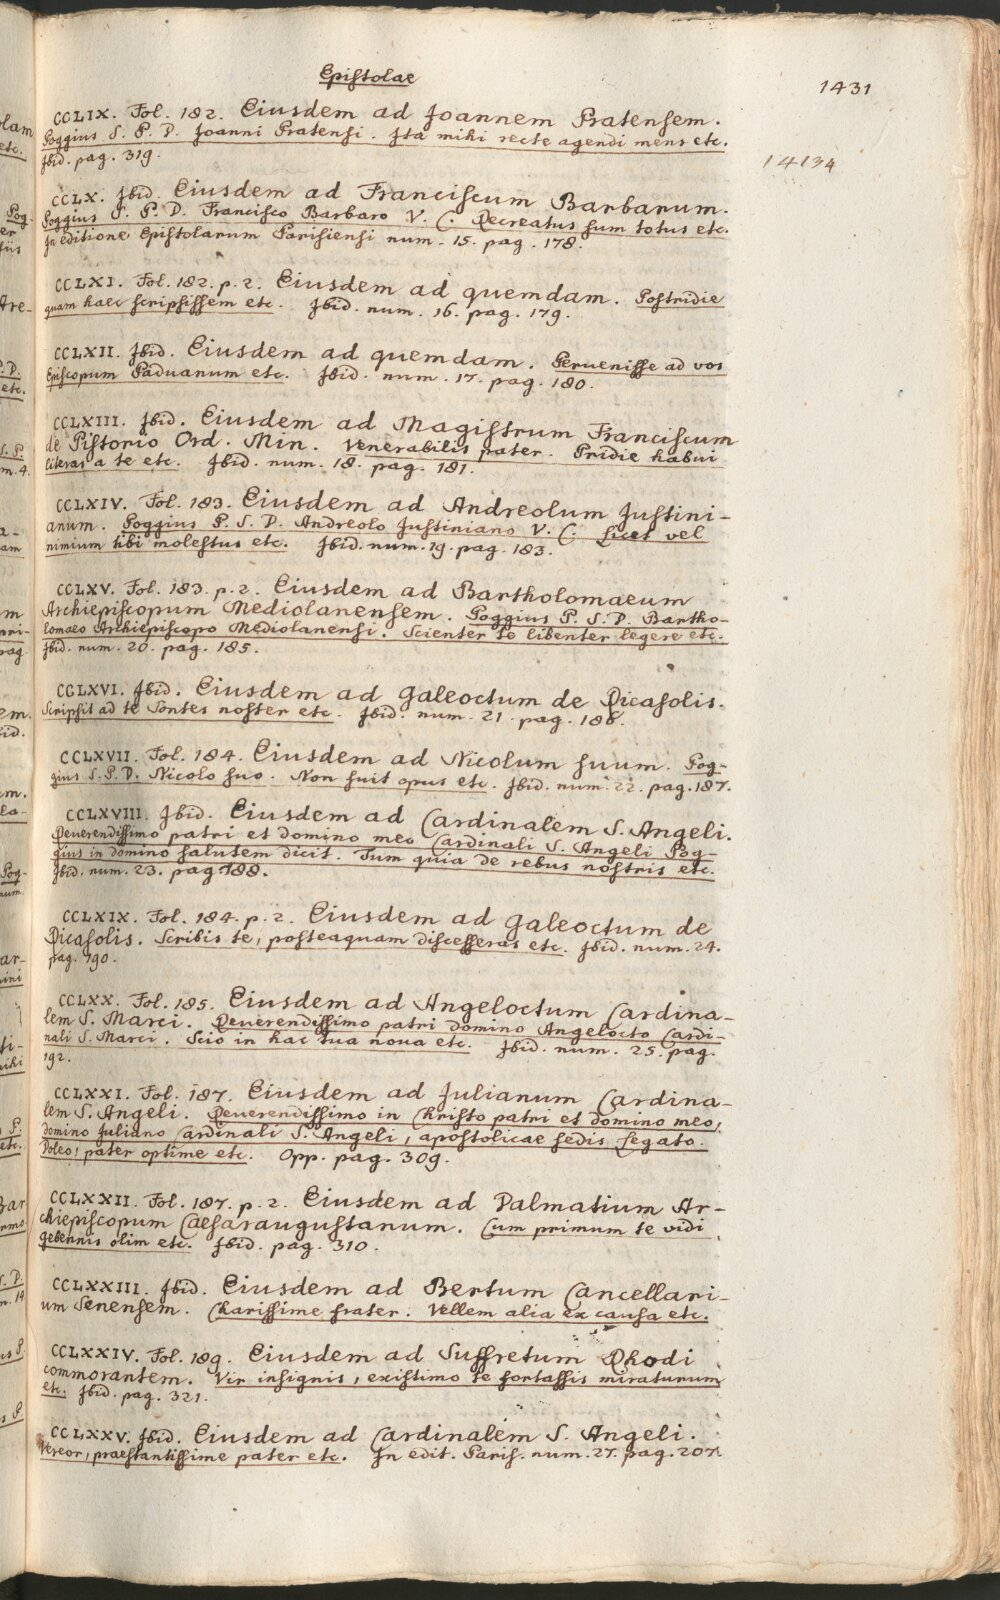 Epistolae
1431
CCLIX. Fol. 182. Eiusdem ad Joannem Pratensem.
Poggius S. P. D. Joanni Pratensi. Ita mihi recte agendi mens etc.
Ibid. pag. 319.
14134
CCLX. Ibid. Eiusdem ad Franciscum Barbarum.
Poggius S. P. D. Francisco Barbaro V. C. Recreatus sum totus etc.
In editione Epistolarum Parisiensi num. 15. pag. 178.
CCLXI. Fol. 182. p. 2. Eiusdem ad quemdam. Postridie
quam haec scripsissem etc. Ibid. num. 16. pag. 179.
CCLXII. Ibid. Eiusdem ad quemdam. Peruenisse ad vos
Episcopum Paduanum etc. Ibid. num. 17. pag. 180.
CCLXIII. Ibid. Eiusdem ad Magistrum Franciscum
de Pistorio Ord. Min. Venerabilis pater. Pridie habui
literas a te etc. Ibid. num. 18. pag. 181.
CCLXIV. Fol. 183. Eiusdem ad Andreolum Justini-
anum. Poggius P. S. D. Andreolo Justiniano V. C: Licet vel
nimium tibi molestus etc. Ibid. num. 19. pag. 183.
CCLXV. Fol. 183. p. 2. Eiusdem ad Bartholomaeum
Archiepiscopum Mediolanensem. Poggius P. S. D. Bartho-
lomaeo Archiepiscopo Mediolanensi. Scienter te libenter legere etc.
Ibid. num. 20. pag. 185.
CCLXVI. Ibid. Eiusdem ad Galeoctum de Ricasolis.
Scripsit ad te Sontes noster etc. Ibid. num. 21. pag. 186.
CCLXVII. Fol. 184. Eiusdem ad Nicolum suum. Pog-
gius S. P. D. Nicolo suo. Non fuit opus etc. Ibid. num. 22. pag. 187.
CCLXVIII. Ibid. Eiusdem ad Cardinalem S. Angeli.
Reuerendissimo patri et domino meo Cardinali S. Angeli Pog-
gius in domino salutem dicit. Tum quia de rebus nostris etc.
Ibid. num. 23. pag. 188.
CCLXIX. Fol. 184. p. 2. Eiusdem ad Galeoctum de
Ricasolis. Scribis te, posteaquam discesseras etc. Ibid. num. 24.
pag. 190.
CCLXX. Fol. 185. Eiusdem ad Angeloctum Cardina-
lem S. Marci. Reuerendissimo patri domino Angelocto Cardi-
nali S. Marci. Scio in hac tua noua etc. Ibid. num. 25. pag.
192.
CCLXXI. Fol. 187. Eiusdem ad Julianum Cardina-
lem S. Angeli. Reuerendissimo in Christo patri et domino meo,
domino Juliano Cardinali S. Angeli, apostolicae sedis Legato.
Doleo, pater optime etc. Opp. pag. 309.
CCLXXII. Fol. 187. p. 2. Eiusdem ad Dalmatium Ar-
chiepiscopum Caesaraugustanum. Cum primum te vidi
Gebennis olim etc. Ibid. pag. 310.
CCLXXIII. Ibid. Eiusdem ad Bertum Cancellari-
um Senensem. Charissime frater. Vellem alia ex causa etc.
CCLXXIV. Fol. 189. Eiusdem ad Suffretum Rhodi
commorantem. Vir insignis, existimo te fortassis miraturum
etc. Ibid. pag. 321.
CCLXXV. Ibid. Eiusdem ad Cardinalem S. Angeli.
Vereor, praestantissime pater etc. In edit. Paris. num. 27. pag. 207.